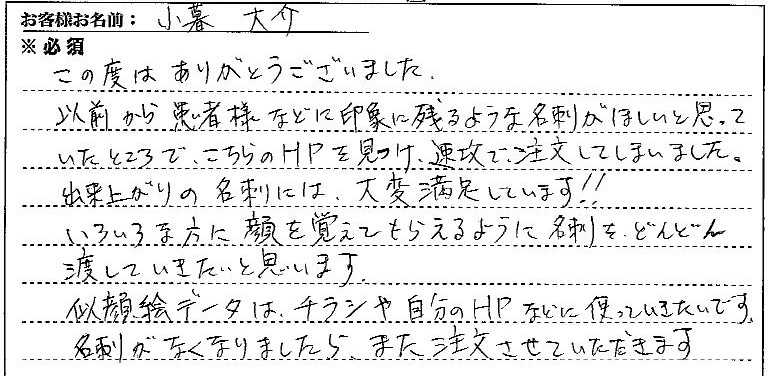 お客様お名前： 小暮 大介
※必須
この度は ありがとうございました.
以前から 患者様などに印象に残るような名刺がほしいと思って
いたところで、こちらのHPを見つけ、速攻で、注文してしまいました。
出来上がりの名刺には、大変満足しています!!
いろいろな方に顔を覚えてもらえるように名刺を、どんどん
渡していきたいと思います.
似顔絵データは、チラシや自分のHPなどに使っていきたいです.
名刺がなくなりましたら、また注文させていただきます